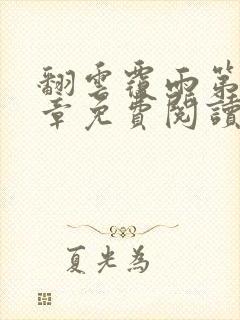 翻雲覆雨第
章免費閱讀
夏光為